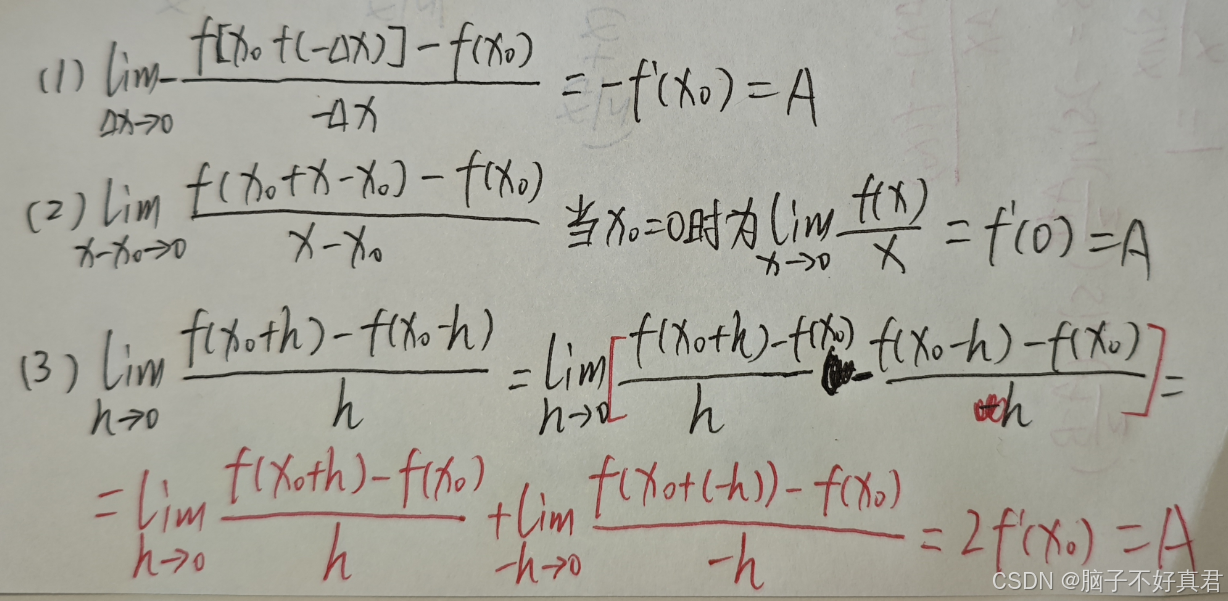 (1) lim_{Δx→0} - \frac{f[x₀+(-Δx)]-f(x₀)}{-Δx} = -f'(x₀) = A
(2) lim_{x-x₀→0} \frac{f(x₀+x-x₀)-f(x₀)}{x-x₀} 当x₀=0时为 lim_{x→0} \frac{f(x)}{x} = f'(0) = A
(3) lim_{h→0} \frac{f(x₀+h)-f(x₀-h)}{h} = lim_{h→0} [\frac{f(x₀+h)-f(x₀)}{h} - \frac{f(x₀-h)-f(x₀)}{h}] =
= lim_{h→0} \frac{f(x₀+h)-f(x₀)}{h} + lim_{-h→0} \frac{f(x₀+(-h))-f(x₀)}{-h} = 2f'(x₀) = A
CSDN @脑子不好真君